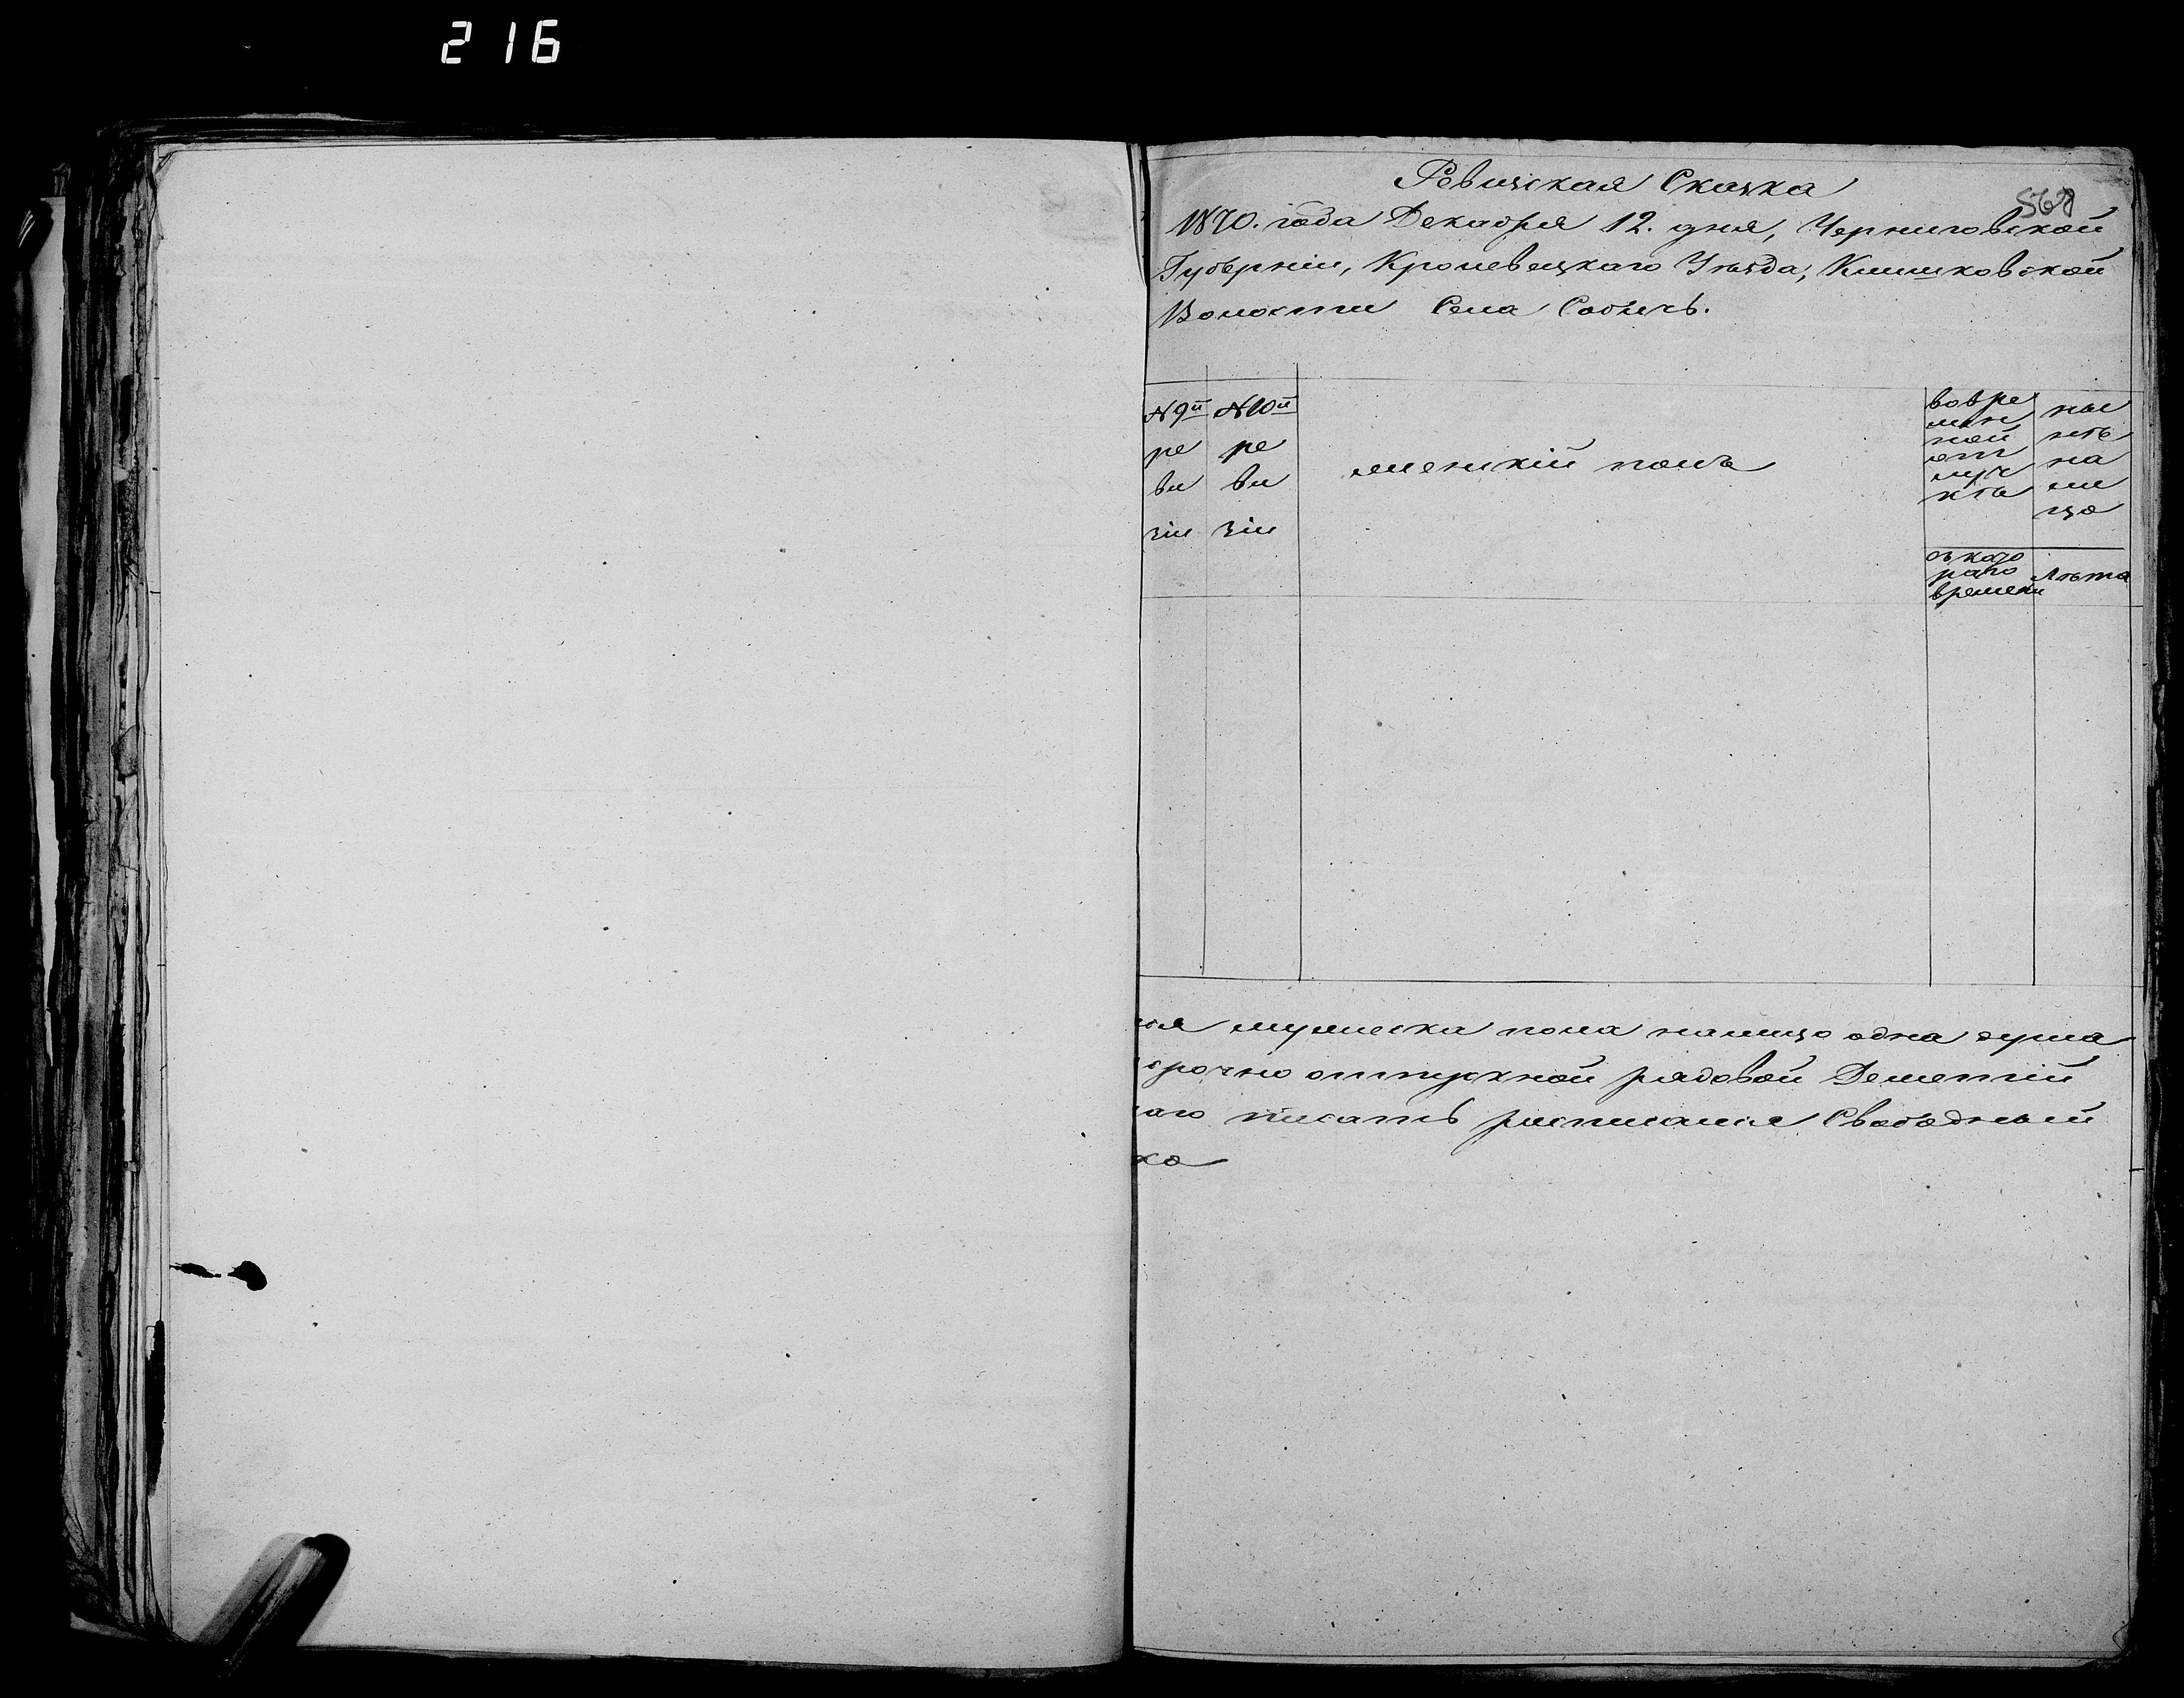 216
568
Ревизская Сказка
1870. года Декабря 12. дня, Черниговской
Губерніи, Кролевецкаго Уѣзда, Клишковской
Волости Села Собичь.
№ 9й
ре
ви
зіи
№ 10й
ре
ви
зіи
женскій полъ
вовре
мен
ной
от
луч
кѣ
ны
нѣ
на
ли
цо
съ кото
раго
времени
Лѣта
мужеска пола налицо одна душа
срочно отпускной рядовой Дементій
писать росписался Свободный
ка